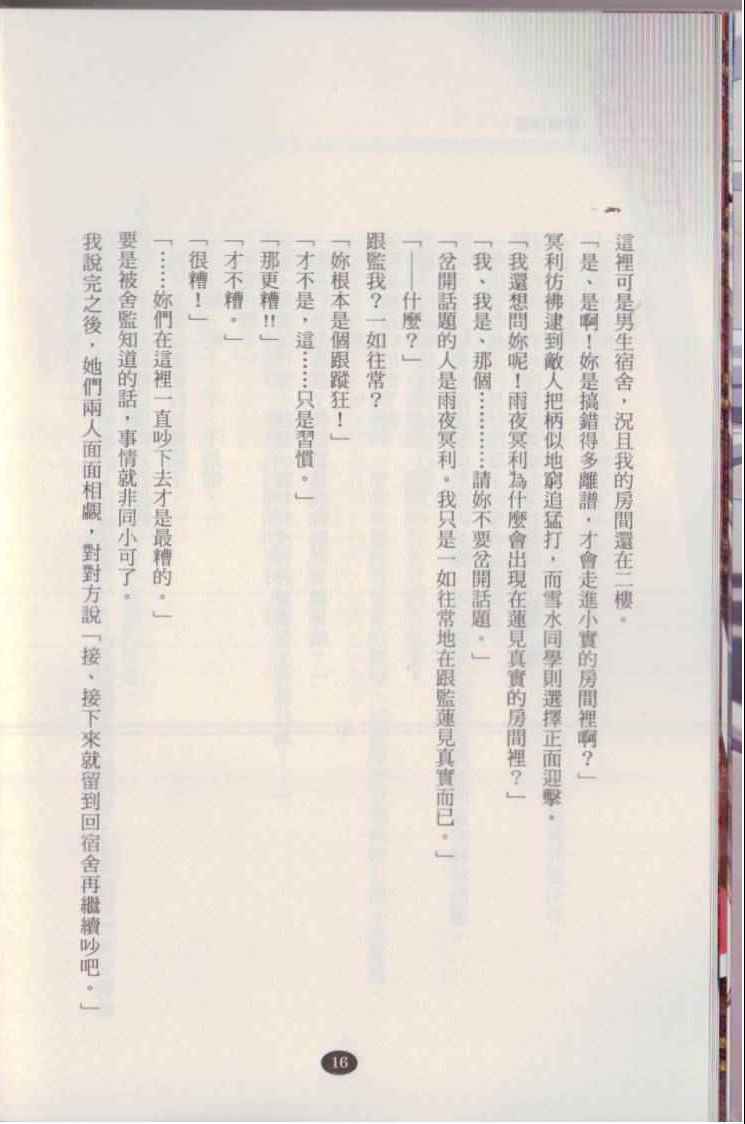 這裡可是男生宿舍，況且我的房間還在二樓。
「是、是啊！妳是搞錯得多離譜，才會走進小實的房間裡啊？」
冥利彷彿逮到敵人把柄似地窮追猛打，而雪水同學則選擇正面迎擊。
「我還想問妳呢！雨夜冥利為什麼會出現在蓮見真實的房間裡？」
「我、我是、那個…………請妳不要岔開話題。」
「岔開話題的人是雨夜冥利。我只是一如往常地在跟監蓮見真實而已。」
「——什麼？」
跟監我？一如往常？
「妳根本是個跟蹤狂！」
「才不是，這……只是習慣。」
「那更糟!!」
「才不糟。」
「很糟！」
「……妳們在這裡一直吵下去才是最糟的。」
要是被舍監知道的話，事情就非同小可了。
我說完之後，她們兩人面面相覷，對對方說「接、接下來就留到回宿舍再繼續吵吧。」
16